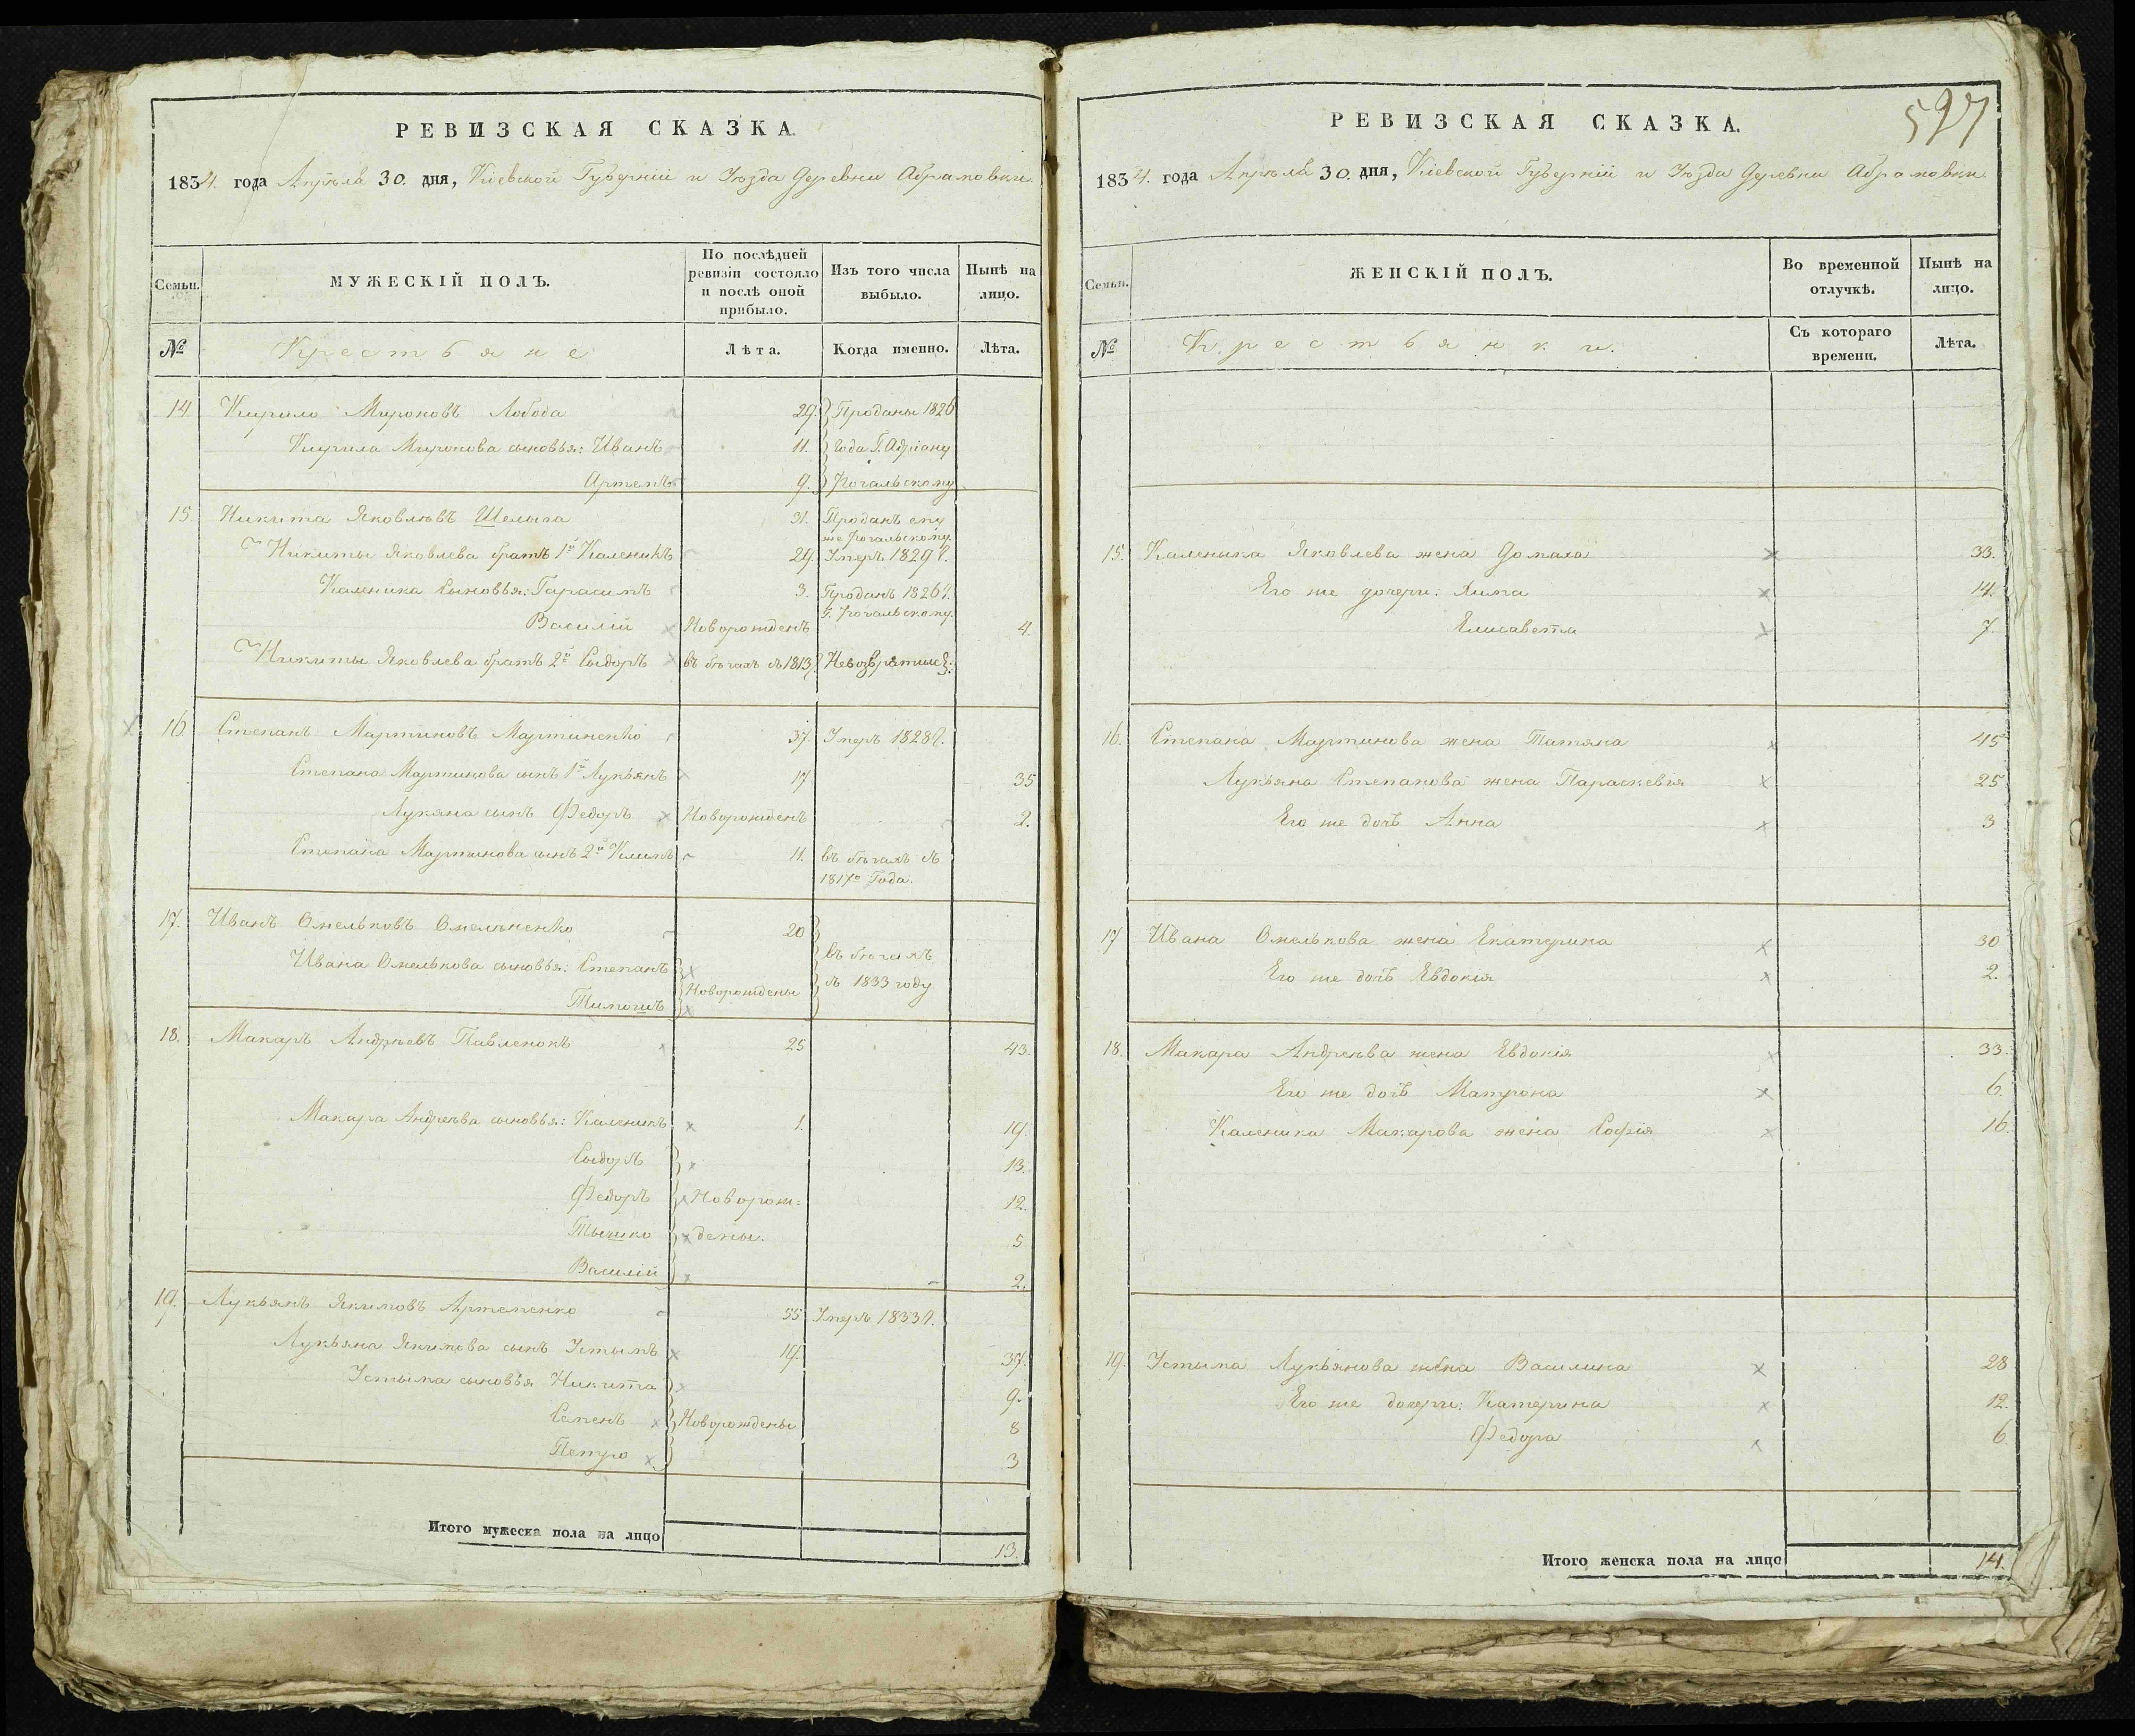 РЕВИЗСКАЯ СКАЗКА.
1834. года Апрѣля 30. дня, Кіевской Губерніи и Уѣзда Деревни Абрамовки.
Семьи.
МУЖЕСКІЙ ПОЛЪ.
По послѣдней ревизіи состояло и послѣ оной прибыло.
Изъ того числа выбыло.
Нынѣ на лицо.
№
Крестьяне
Лѣта.
Когда именно.
Лѣта.
14 Кирило Мироновъ Лобода 29. Проданы 1826
Кирила Миронова сыновья: Иванъ 11. Года Г. Адріану
Артемъ 9. Рогальскому
15 Никита Яковлѣвъ Шелыга 31. Проданъ ему
же Рогальскому.
Никиты Яковлева братъ 1й Каленикъ 29. Умеръ 1829 г.
Каленика Сыновья: Гарасимъ 3. Проданъ 1826 г.
Г. Рогальскому.
Василій Новорожденъ 4.
Никиты Яковлева братъ 2й Сыдоръ въ бѣгахъ съ 1813 г.
16 Степанъ Мартиновъ Мартиненко 37. Умеръ 1828 г.
Степана Мартинова сынъ 1й Лукьянъ 17 35
Лукяна сынъ Федоръ Новорожденъ 2.
Степана Мартинова сынъ 2й Климъ 11. въ бѣгахъ съ
1817о Года.
17. Иванъ Омельковъ Омельненко 20
Ивана Омелькова сыновья: Степанъ въ бѣгахъ
Тимошъ Новорождены съ 1833 году
18. Макаръ Андрѣевъ Павленокъ 25 43.
Макара Андреева сыновья: Каленикъ 1. 19.
Сыдоръ 13.
Федоръ Новорож: 12.
Тышко дены. 5
Василій 2.
19. Лукьянъ Якимовъ Артеменко 55 Умеръ 1833 г.
Лукьяна Якимова сынъ Устымъ 19. 37.
Устыма сыновья Никита 9.
Семенъ Новорождены 8
Петро 3
Итого мужеска пола на лицо 13.
597
РЕВИЗСКАЯ СКАЗКА.
1834. года Апрѣля 30. дня, Кіевской Губерніи и Уѣзда Деревни Абрамовки
Семьи.
ЖЕНСКІЙ ПОЛЪ.
Во временной отлучкѣ.
Нынѣ на лицо.
№
Крестьянки.
Съ котораго времени.
Лѣта.
15. Каленыка Яковлева жена Домаха 33.
Его же дочери: Хима 14.
Елисавета 7.
16. Степана Мартинова жена Татяна 45
Лукьяна Степанова жена Параскевія 25
Его же дочь Анна 3
17 Ивана Омелькова жена Екатерина 30
Его же дочь Евдокія 2.
18. Макара Андреева жена Евдокія 33.
Его же дочь Матрона 6.
Каленика Макарова жена Софія 16.
19. Устыма Лукьянова жена Василина 28
Его же дочери: Катерина 12.
Федора 6.
Итого женска пола на лицо 14.